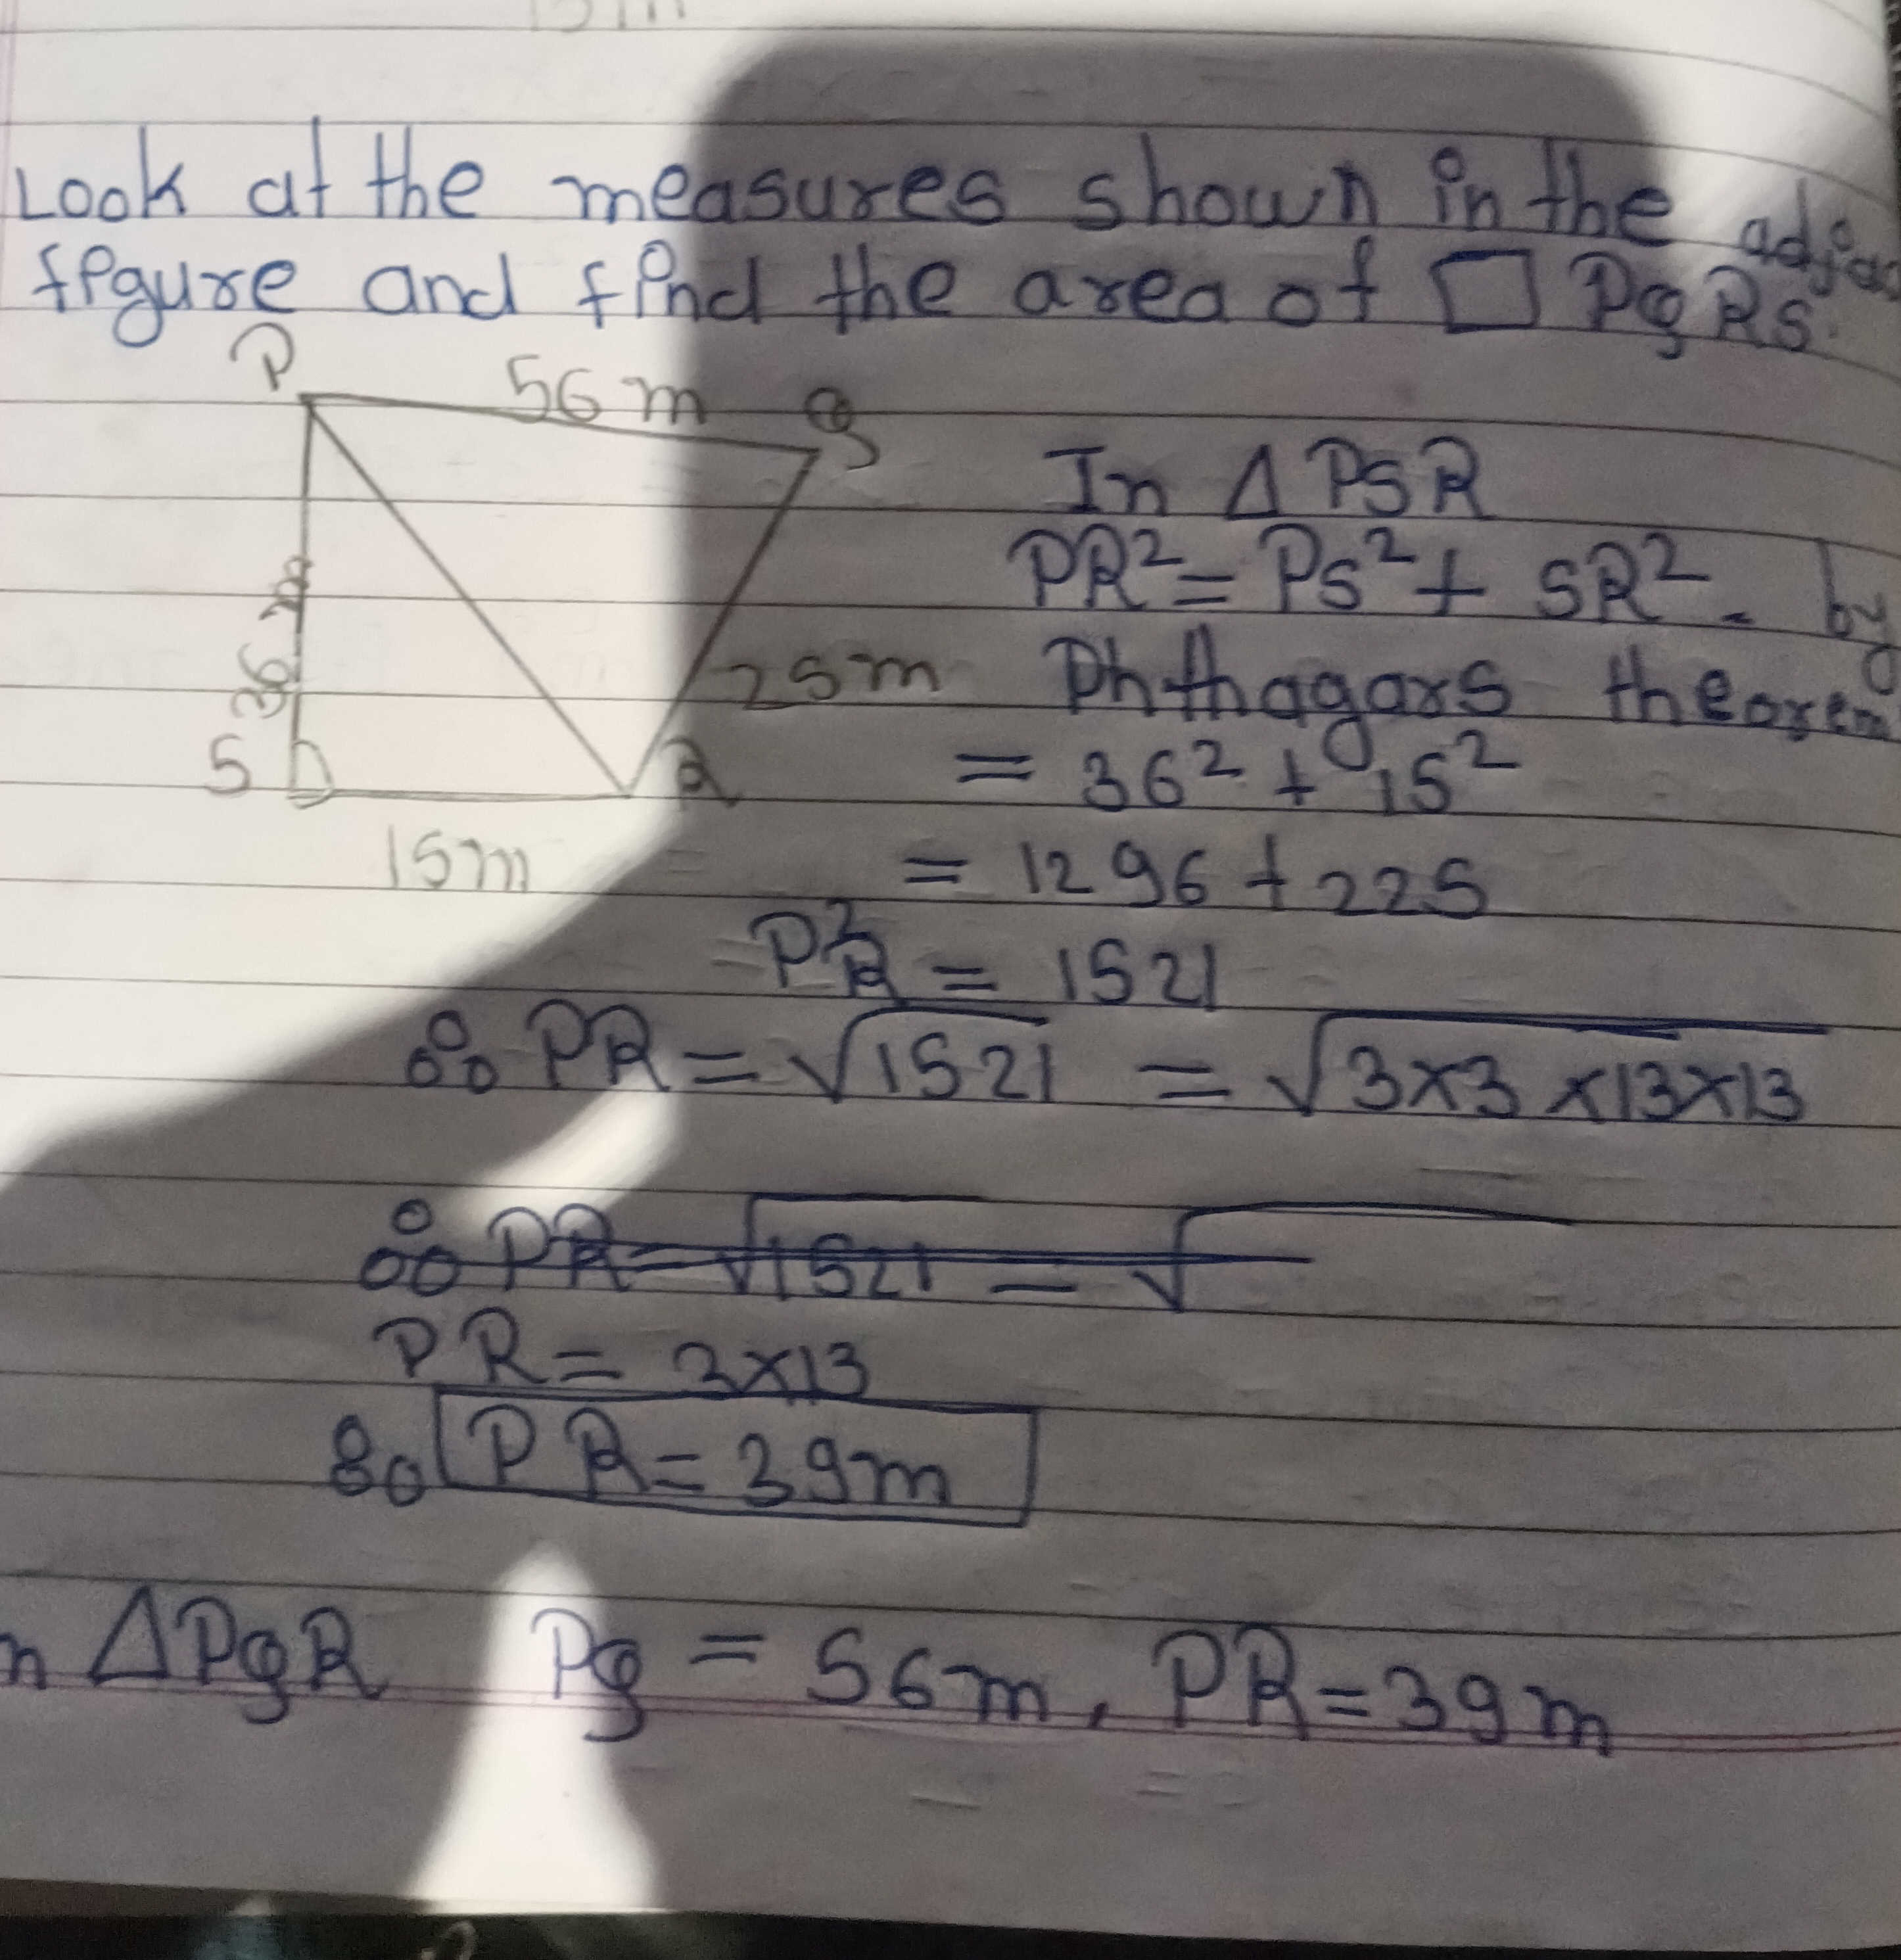 Look at the measures shown in the
fegure and find the area of □ PQRS.
P
56 m
Q
36 m
25m
S
R
15m
In Δ PSR
PR² = PS² + SR². by
Phthagars theorem
= 36² + 15²
= 1296 + 225
PR² = 1521
∴ PR = √1521 = √3×3×13×13
∴ PR = √1521 = √
PR = 3×13
∴ PR = 39m
n ΔPQR PQ = 56m, PR = 39m